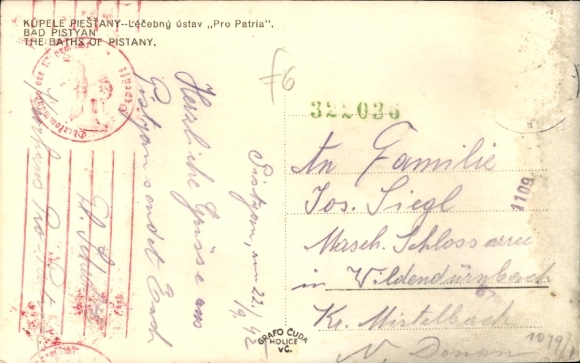 KÚPELE PIEŠŤANY--Léčebný ústav „Pro Patria”.
BAD PISTYAN
THE BATHS OF PISTANY.
F6
322036
Pistyan, am 22./
19 42
Herzliche Grüsse aus
Pistyan sendet Euch
An Familie
Jos. Siegl
Masch. Schlosserei
in Wildendürnbach
Kr. Mistelbach
N. Donau
1109
1079/
GRAFO ČUDA
HOLICE
VČ.